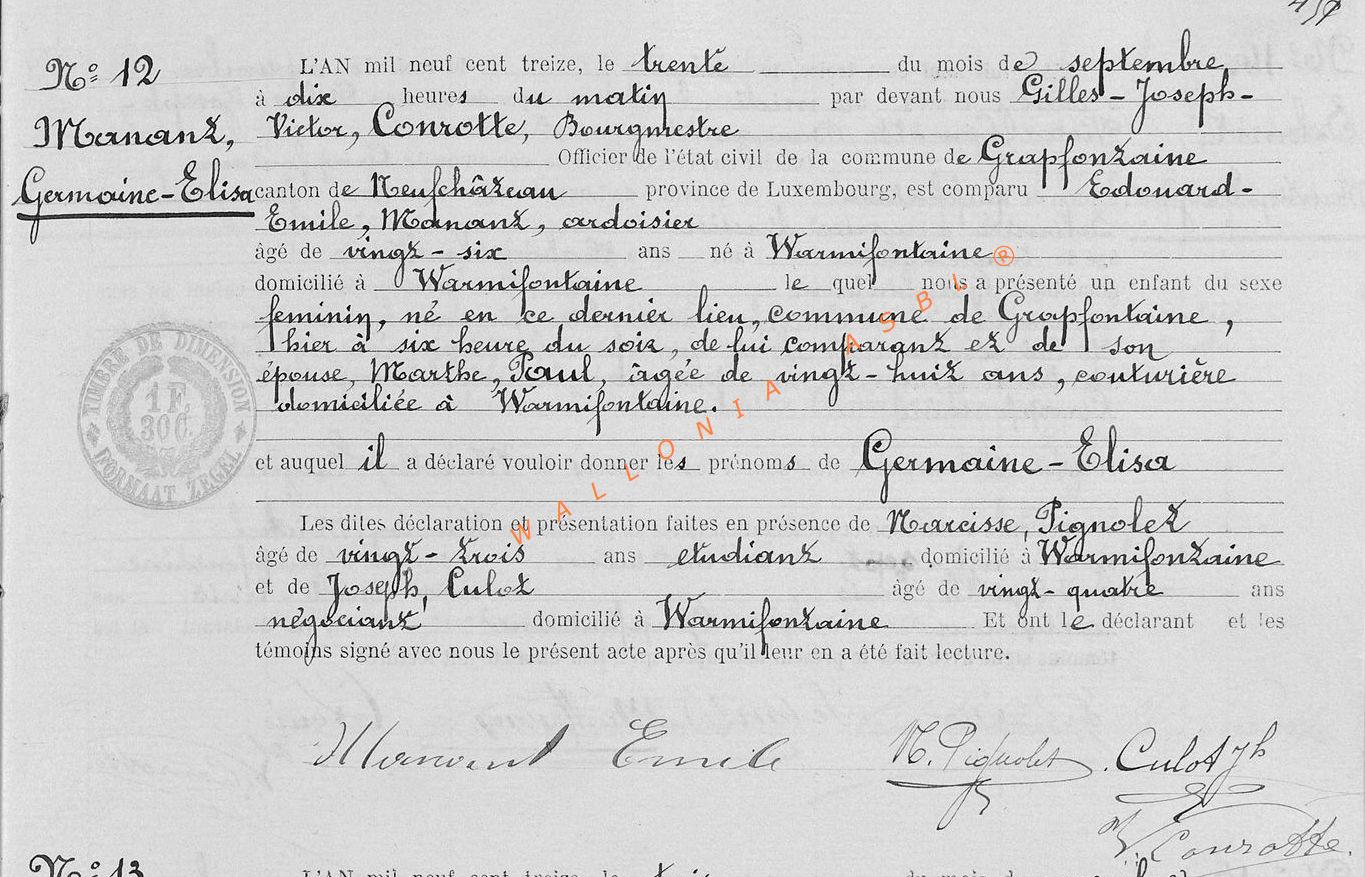 N° 12
Manant,
Germaine-Elisa
L'AN mil neuf cent treize, le trente du mois de septembre
à dix heures du matin par devant nous Gilles-Joseph-
Victor, Conrotte, Bourgmestre
Officier de l'état civil de la commune de Grapfontaine
canton de Neufchâteau province de Luxembourg, est comparu Edouard-
Emile, Manant, ardoisier
âgé de vingt-six ans né à Warmifontaine
domicilié à Warmifontaine le quel nous a présenté un enfant du sexe
feminin, né en ce dernier lieu, commune de Grapfontaine,
hier à six heure du soir, de lui comparant et de son
épouse, Marthe, Paul, âgée de vingt-huit ans, couturière
domiciliée à Warmifontaine.
et auquel il a déclaré vouloir donner les prénoms de Germaine-Elisa
Les dites déclaration et présentation faites en présence de Narcisse, Pignolet
âgé de vingt-trois ans etudiant domicilié à Warmifontaine
et de Joseph, Culot âgé de vingt-quatre ans
négociant domicilié à Warmifontaine Et ont le déclarant et les
témoins signé avec nous le présent acte après qu'il leur en a été fait lecture.
Manant Emile N. Pignolet Culot Jh
V. Conrotte.
TIMBRE DE DIMENSION
1 F.
30 C.
FORMAAT ZEGEL
WALLONIA ASBL ®
N° 13
L'AN mil neuf cent treize, le